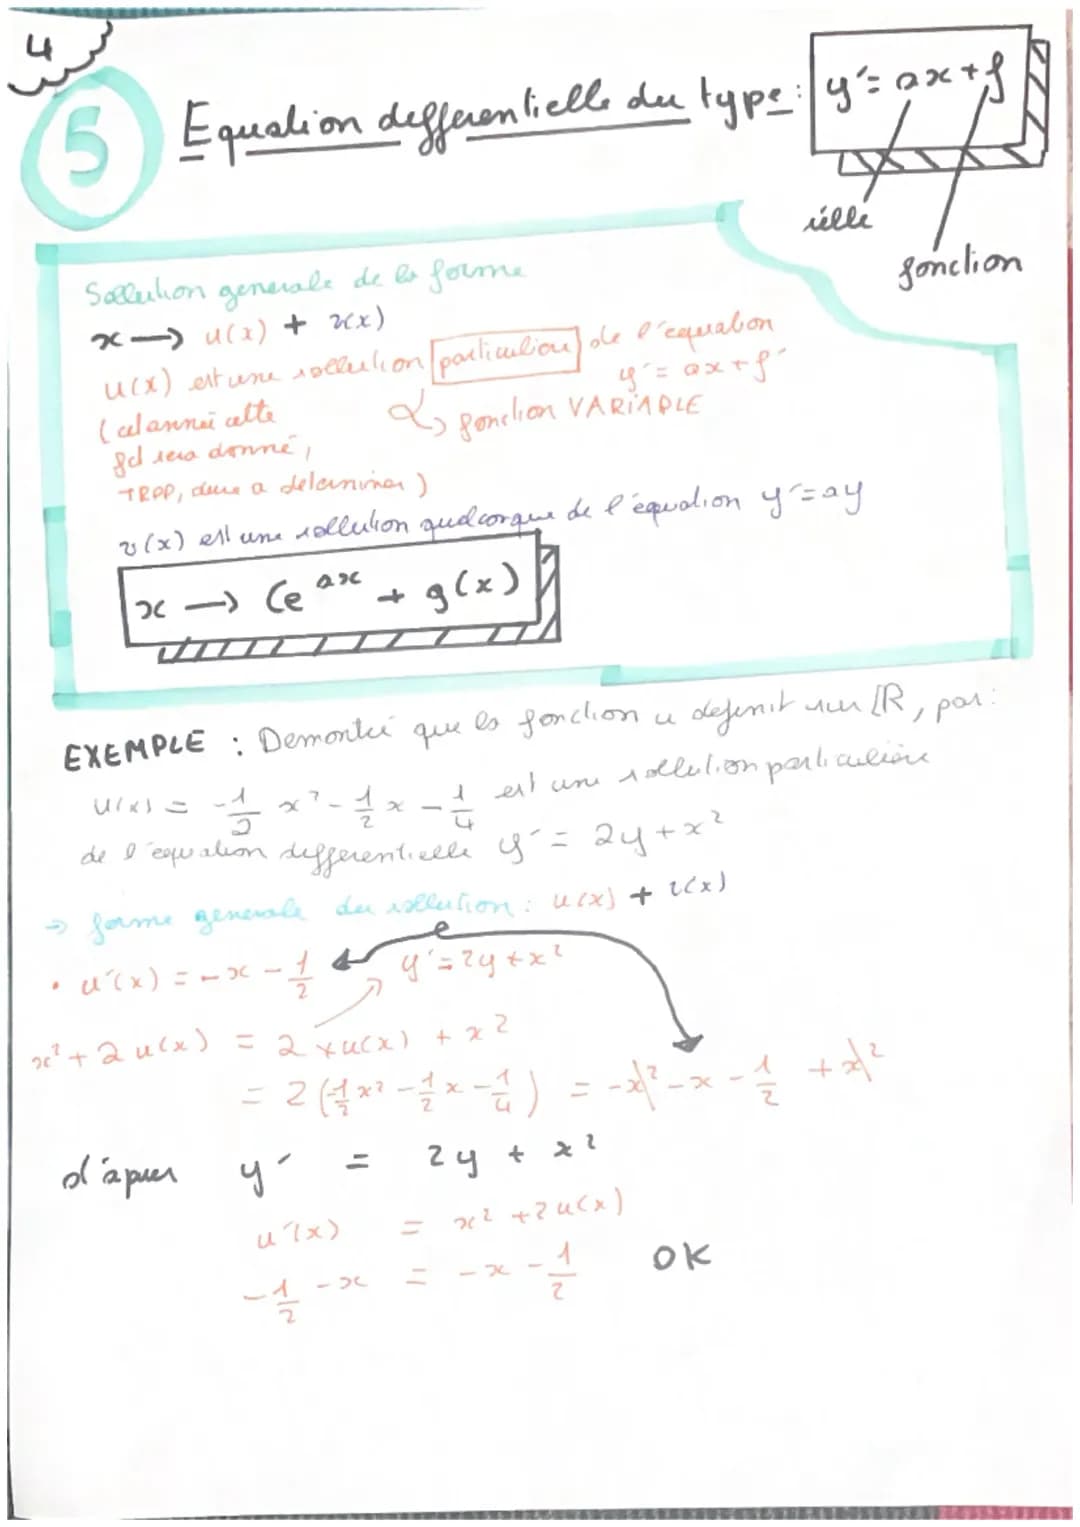 4
5 Equation defferentielle du type: y'= ax + f
réelle
fonction
Sollution generale de la forme
x → u(x) + v(x)
u(x) est une sollution particuliere de l'equation
y'= ax + f
(cel année cette
fct sera donné,
TROP, dure a determiner)
↳ fonction VARIABLE
v(x) est une sollution quelconque de l'équation y'=ay
x → Ce^{ax} + g(x)
EXEMPLE : Demontré que la fonction u definit sur ℝ, par:
u(x) = -\frac{1}{2} x² - \frac{1}{2} x - \frac{1}{4} est une sollution particulière
de l'equation defferentielle y' = 2y + x²
→ forme generale du sollution: u(x) + v(x)
• u'(x) = -x - \frac{1}{2} y'=2y + x²
x² + 2u(x) = 2 × u(x) + x²
= 2(-\frac{1}{2} x² - \frac{1}{2} x - \frac{1}{4}) = -x² - x - \frac{1}{2} + x²
d'aprer y' = 2y + x²
u'(x) = x² + 2u(x)
-\frac{1}{2} - x = -x - \frac{1}{2} OK